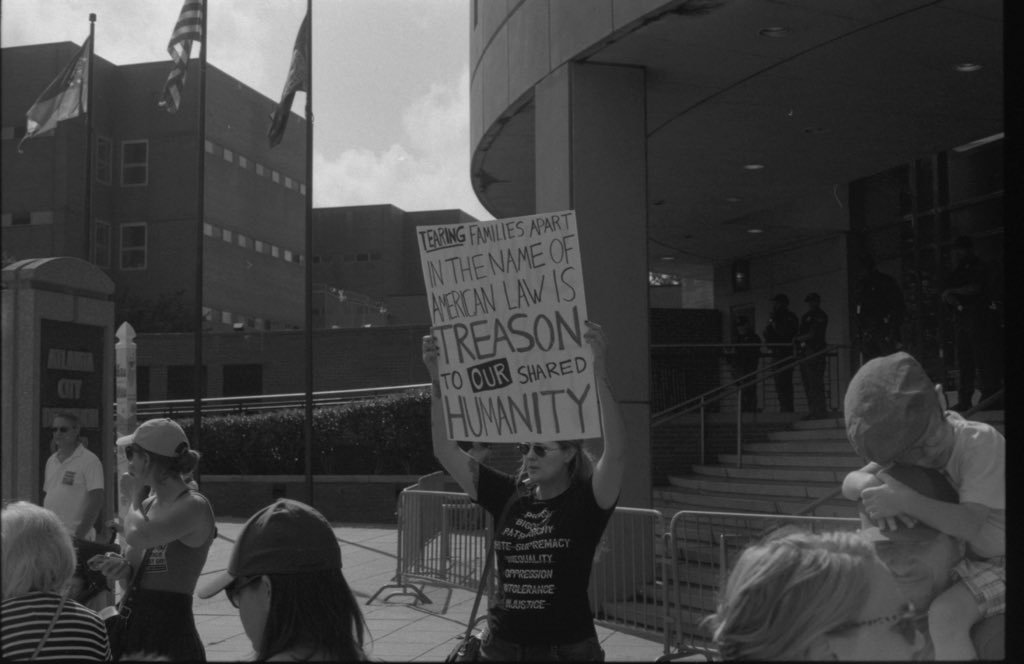 TEARING FAMILIES APART
IN THE NAME OF
AMERICAN LAW IS
TREASON
TO OUR SHARED
HUMANITY
ATLANTA
CITY
PATRIARCHY
INEQUALITY
OPPRESSION
INTOLERANCE
INJUSTICE